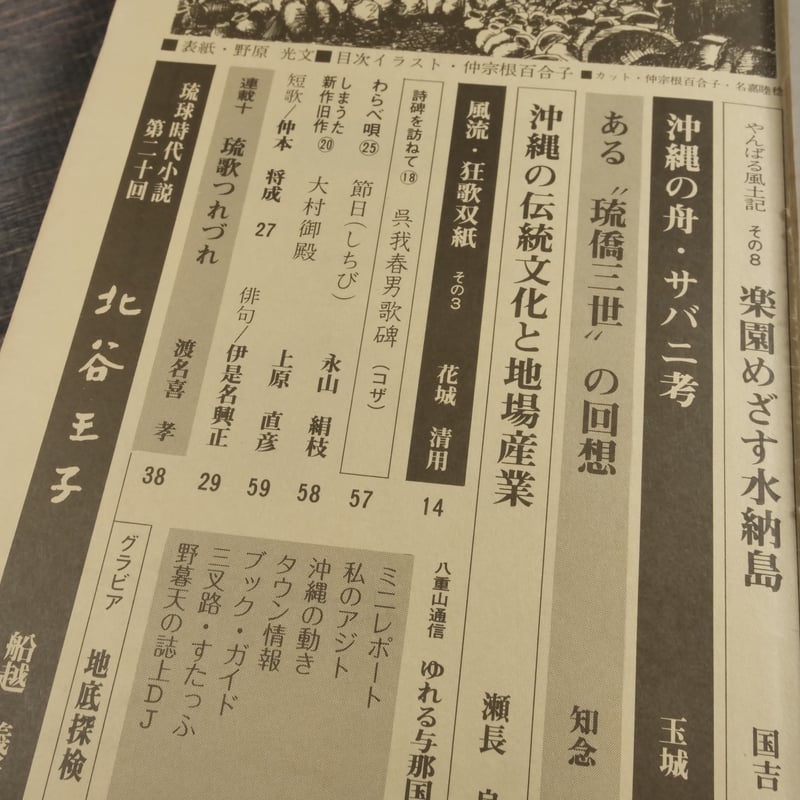 ■表紙・野原 光文■目次イラスト・仲宗根百合子■カット・仲宗根百合子・名嘉睦稔
やんばる風土記 その8 楽園めざす水納島 国吉
沖縄の舟・サバニ考 玉城
ある〝琉僑三世〟の回想 知念
沖縄の伝統文化と地場産業 瀬長
風流・狂歌双紙 その3 花城 清用 14
詩碑を訪ねて⑱ 呉我春男歌碑 (コザ) 57
わらべ唄㉕ 節日(しちび) 永山 絹枝 58
しまうた新作旧作⑳ 大村御殿 上原 直彦 59
短歌/仲本 将成 27 俳句/伊是名興正 29
連載十 琉歌つれづれ 渡名喜 孝 38
琉球時代小説 第二十回 北谷王子 船越
八重山通信 ゆれる与那国
ミニレポート
私のアジト
沖縄の動き
タウン情報
ブック・ガイド
三叉路・すたっふ
野暮天の誌上DJ
グラビア 地底探検